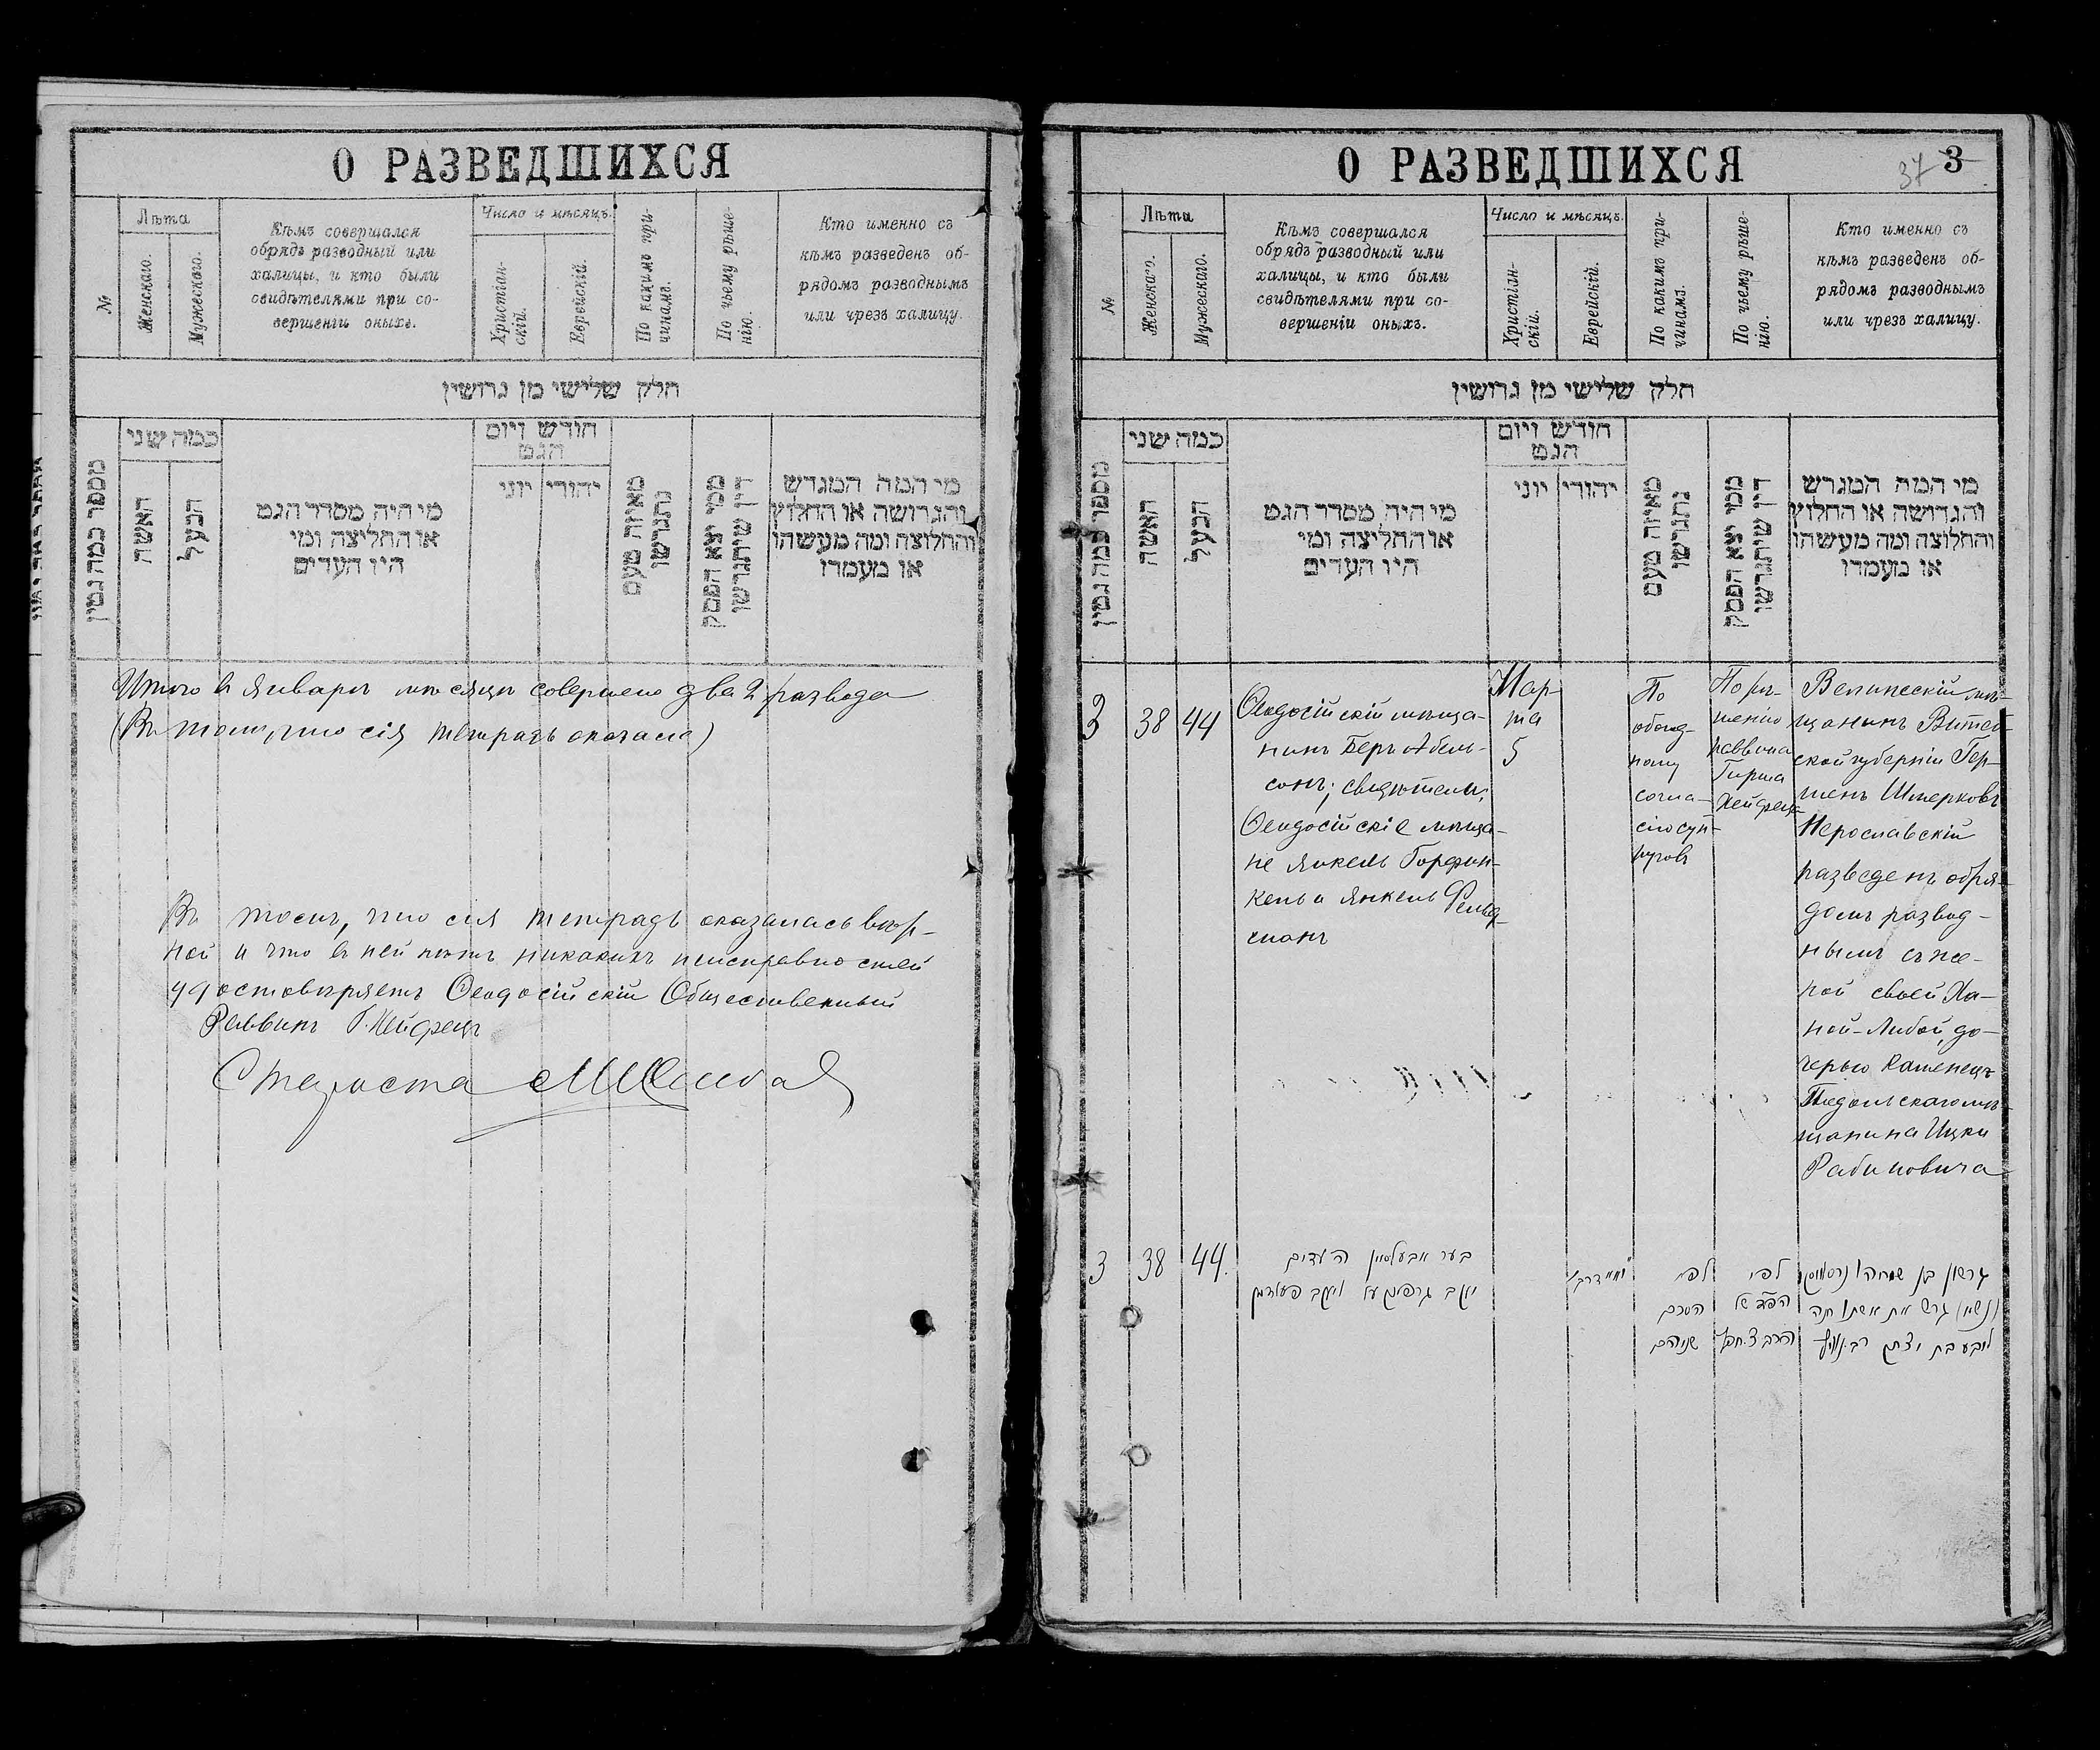 О РАЗВЕДШИХСЯ
№
Лѣта
Женскаго.
Мужескаго.
Кѣмъ совершался
обрядъ разводный или
халицы, и кто были
свидѣтелями при со-
вершеніи оныхъ.
Число и мѣсяцъ.
Христіан-
скій.
Еврейскій.
По какимъ при-
чинамъ.
По чьему рѣше-
нію.
Кто именно съ
кѣмъ разведенъ об-
рядомъ разводнымъ
или чрезъ халицу.
חלק שלישי מן גרושין
מספר כמה גטין
כמה שני
האשה
הבעל
מי היה מסדר הגט
או החליצה ומי
היו העדים
חודש ויום
הגט
יהודי
יוני
מאיזה טעם
נתגרשו
ממי יצא הפסק
דין שיתגרשו
מי המה המגרש
והגרושה או החלוץ
והחלוצה ומה מעשהו
או מעמדו
Итого въ Январѣ мѣсяцѣ совершено два 2 развода
(Въ томъ, что сія тетрадь оказалась)
Въ томъ, что сія тетрадь оказалась вѣр-
ной и что въ ней нѣтъ никакихъ неисправностей
удостовѣряетъ Ѳеодосійскій Общественный
Раввинъ Г. Хейфецъ
Староста
О РАЗВЕДШИХСЯ
37 3
№
Лѣта
Женскаго.
Мужескаго.
Кѣмъ совершался
обрядъ разводный или
халицы, и кто были
свидѣтелями при со-
вершеніи оныхъ.
Число и мѣсяцъ.
Христіан-
скій.
Еврейскій.
По какимъ при-
чинамъ.
По чьему рѣше-
нію.
Кто именно съ
кѣмъ разведенъ об-
рядомъ разводнымъ
или чрезъ халицу.
חלק שלישי מן גרושין
מספר כמה גטין
כמה שני
האשה
הבעל
מי היה מסדר הגט
או החליצה ומי
היו העדים
חודש ויום
הגט
יהודי
יוני
מאיזה טעם
נתגרשו
ממי יצא הפסק
דין שיתגרשו
מי המה המגרש
והגרושה או החלוץ
והחלוצה ומה מעשהו
או מעמדו
3
38
44
Ѳеодосійскій мѣща-
нинъ Беръ Абель-
сонъ; свидѣтели:
Ѳеодосійскіе мѣща-
не Янкель Горфин-
кель и Янкель Фельд-
манъ
Мар-
та
5
По
обоюд-
ному
согла-
сію суп-
руговъ
По рѣ-
шенію
раввина
Гирша
Хейфеца
Велижскій мѣ-
щанинъ Витеб-
ской губерніи Гер-
шенъ Шмерковъ
Нерославскій
разведенъ обря-
домъ развод-
нымъ съ же-
ной своей Ха-
ной-Либой, до-
черью Каменецъ
Подольскаго мѣ-
щанина Ицки
Рабиновича
3
38
44.
בער אבעלסאן העדים
יעקב גרפינקעל ויעקב פעלדמן
לפי
הסכם
שניהם
לפי
הפ״ד של
הרב צ. חפץ
גרשון בן
גרש את אשתו חנה
ליבע בת יצחק